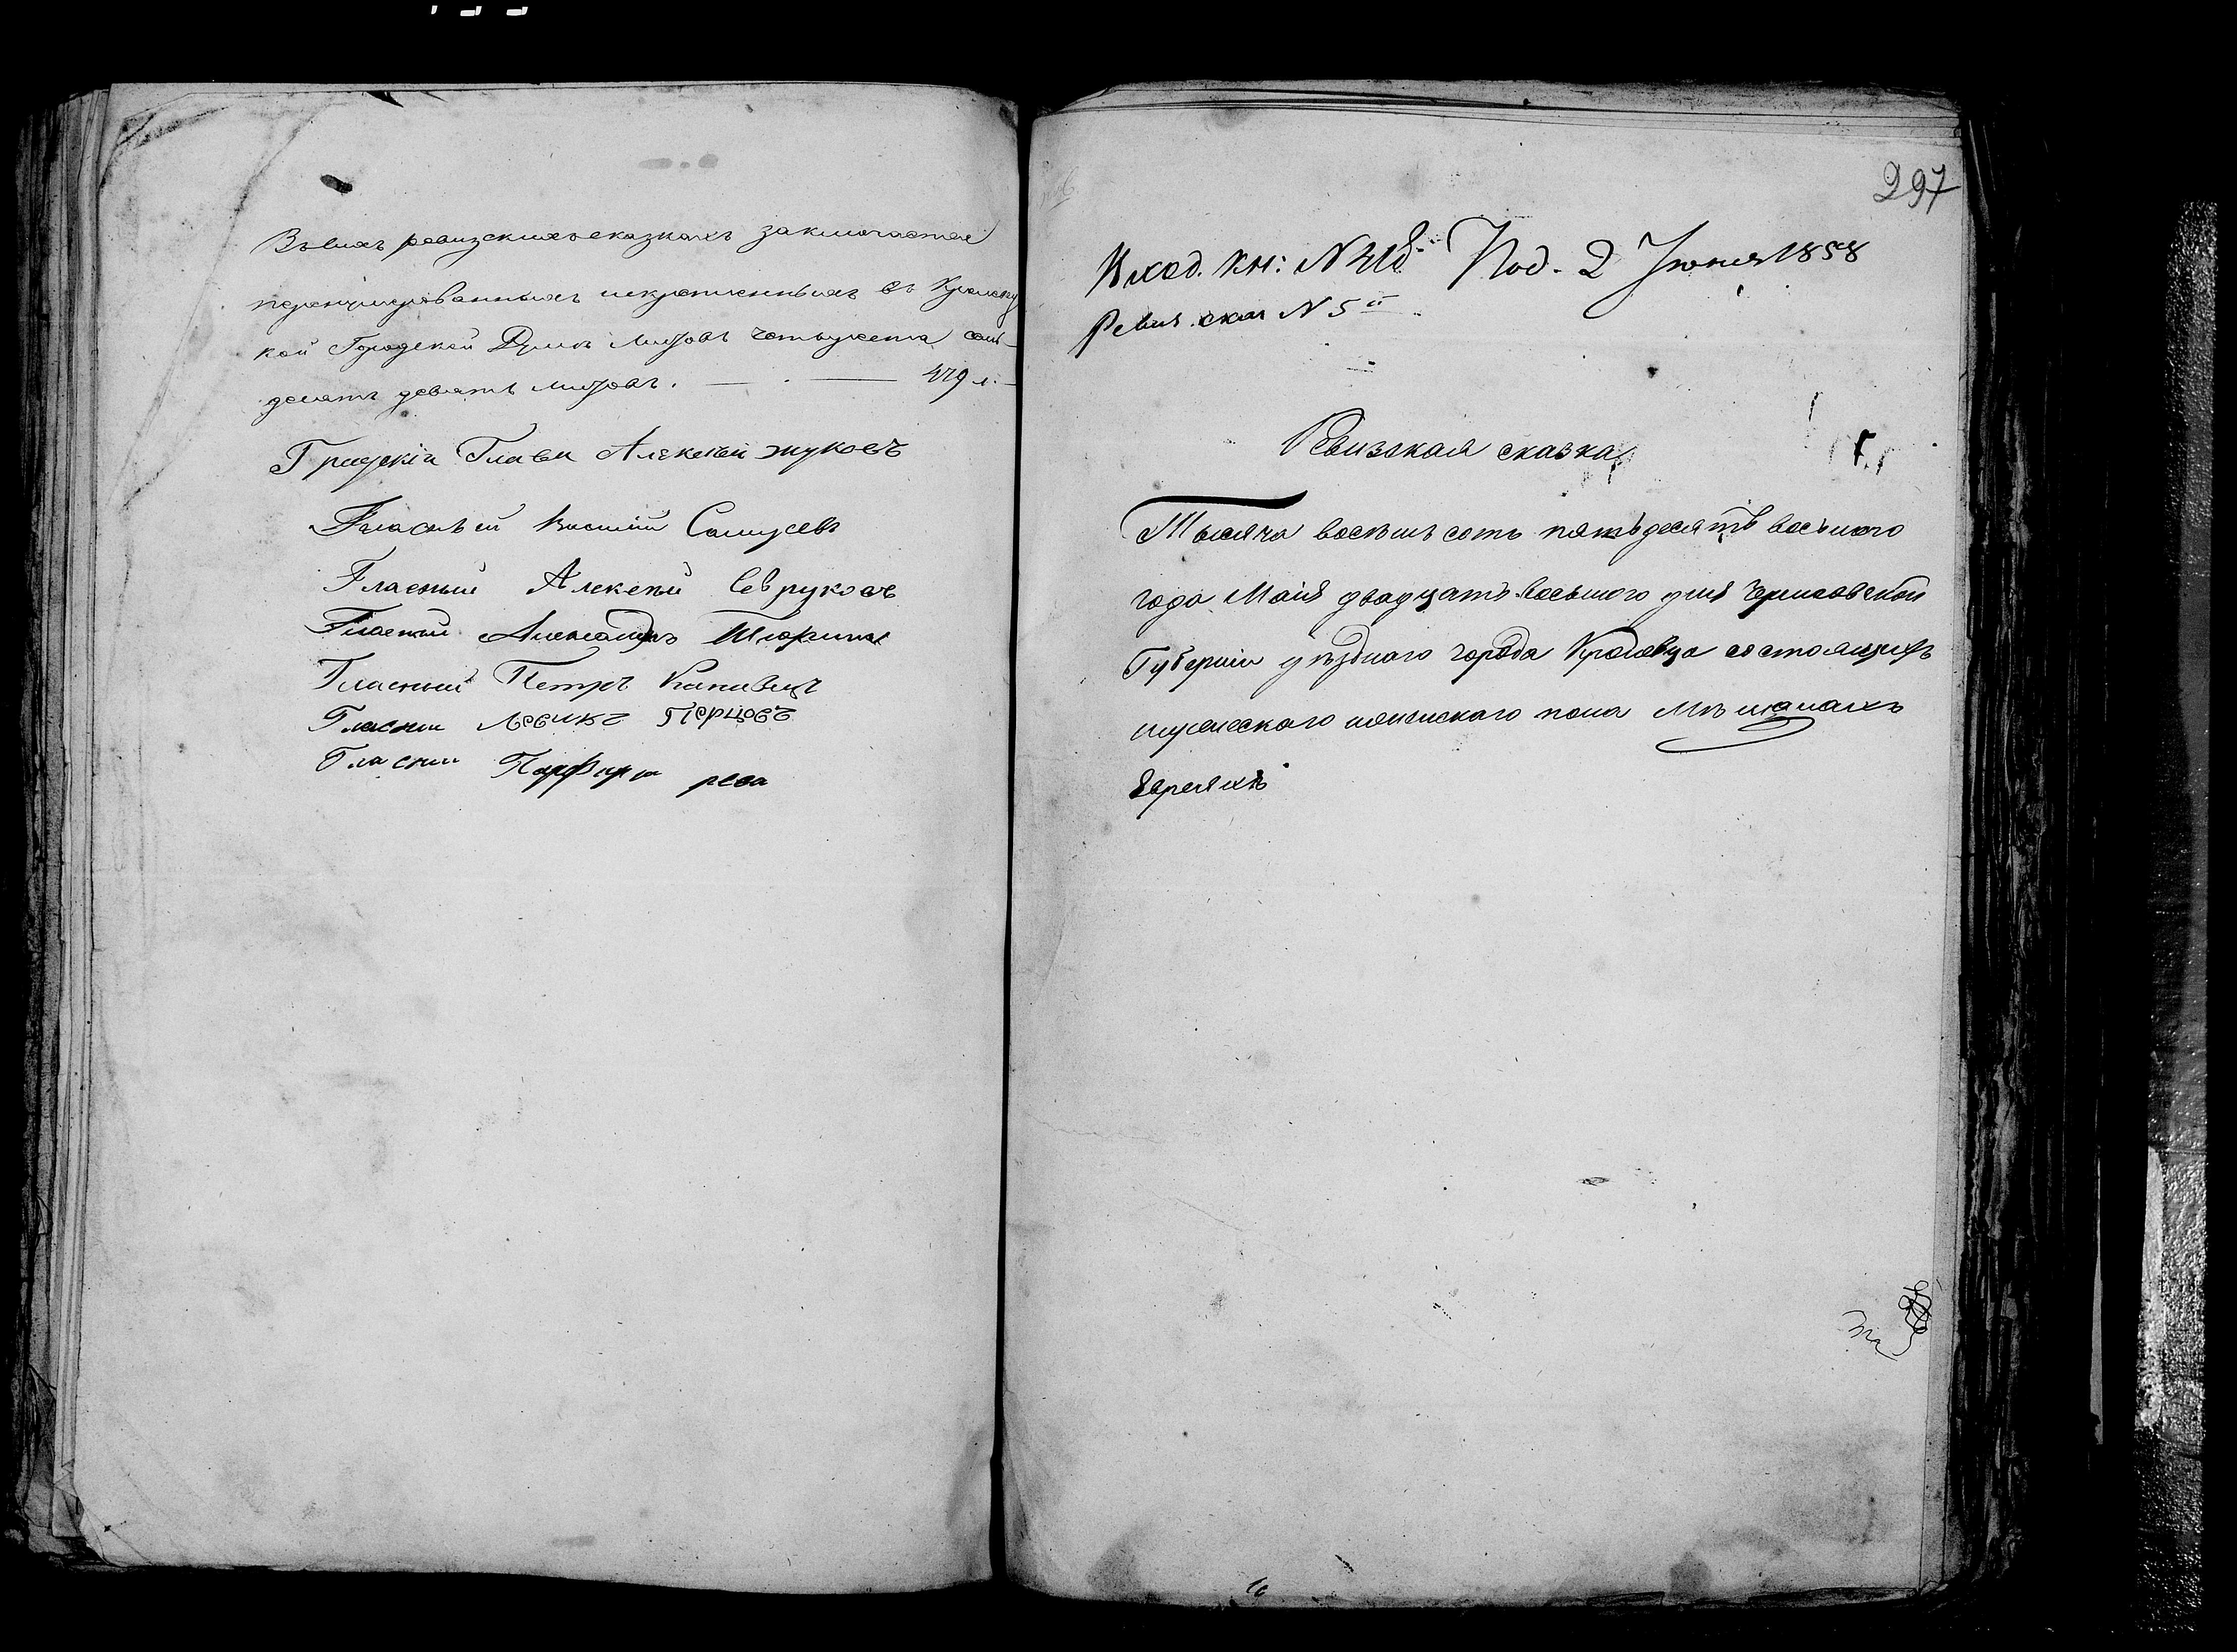 Въ сихъ ревизскихъ сказкахъ заключается
перенумерованныхъ и скрепленныхъ въ Кролевец
кой Городской Думе листовъ четыреста семь-
десятъ девять листовъ. 479 л.
Градскій Глава Алексей Жуковъ
Гласный Василій
Гласный Алексей Севруковъ
Гласный Александръ
Гласный Петръ
Гласни Левикъ Перцовъ
Гласни Парфири рева
297
Вход. кн: N Под. 2 Июня 1858
Ревиз. скаж N 5
Ревизская сказка
Тысяча восемь сотъ пятьдесятъ восьмого
года Маія двадцать восьмого дня Черниговской
Губерніи уѣзднаго города Кролевца о состоящихъ
мужескаго и женскаго пола Мѣщанахъ
Евреяхъ